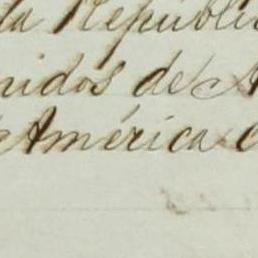 la República
nidos de A
América c